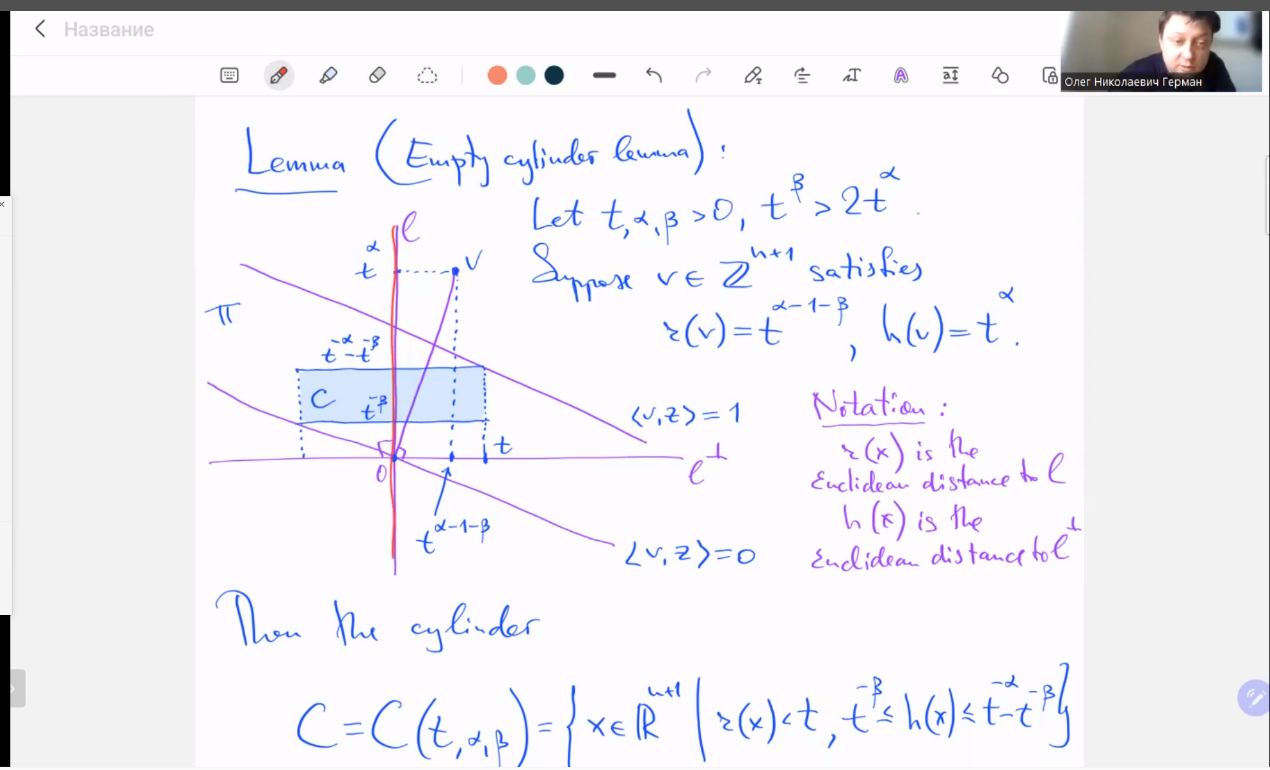 Название
Олег Николаевич Герман
Lemma (Empty cylinder lemma):
Let t, α, β > 0, t^β > 2t^α.
Suppose v ∈ ℤ^{n+1} satisfies
r(v) = t^{α-1-β}, h(v) = t^α.
ℓ
t^α
v
π
t^{-α} - t^{-β}
C
t^{-β}
t
0
ℓ^⊥
t^{α-1-β}
⟨v, z⟩ = 1
⟨v, z⟩ = 0
Notation:
r(x) is the
Euclidean distance to ℓ
h(x) is the
Euclidean distance to ℓ^⊥
Then the cylinder
C = C(t, α, β) = { x ∈ ℝ^{n+1} | r(x) < t, t^{-β} ≤ h(x) ≤ t^{-α} - t^{-β} }